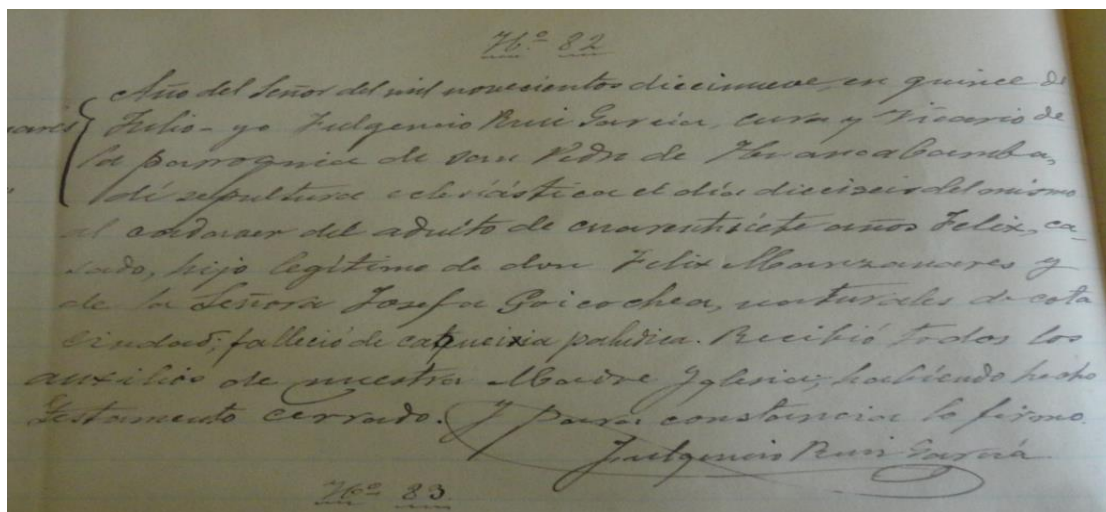 Nº 82
Año del Señor del mil novecientos diecinueve, en quince de
Julio- yo Fulgencio Ruiz García, cura y Vicario de
la parroquia de San Pedro de Huancabamba,
dí sepultura eclesiástica el día dieciseis del mismo
al cadaver del adulto de cuarentisiete años Felix, ca-
sado, hijo legítimo de don Felix Manzanares y
de la Señora Josefa Goicochea, naturales de esta
Ciudad; falleció de caquexia palúdica. Recibió todos los
auxilios de nuestra Madre Iglesia; habiendo hecho
testamento cerrado. Y para constancia lo firmo.
Fulgencio Ruiz García
Nº 83